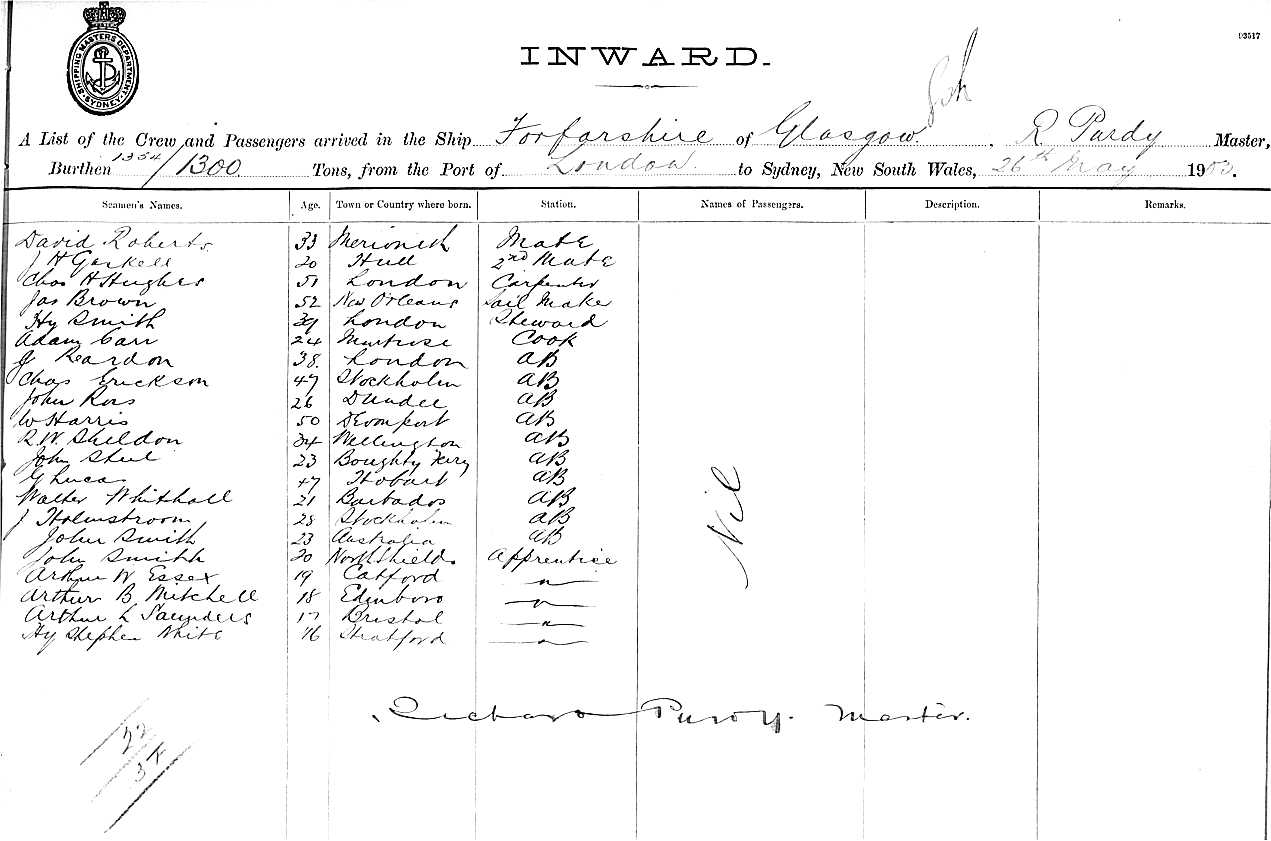 SHIPPING MASTERS DEPARTMENT SYDNEY
03517
INWARD.
A List of the Crew and Passengers arrived in the Ship Forfarshire of Glasgow, R Purdy Master,
Burthen 1354/1300 Tons, from the Port of London to Sydney, New South Wales, 26th May 1903.
Seamen's Names. Age. Town or Country where born. Station. Names of Passengers. Description. Remarks.
David Roberts 33 Merioneth Mate
J H Gaskell 20 Hull 2nd Mate
Chas H Hughes 51 London Carpenter
Jas Brown 52 New Orleans Sail Make
Hy Smith 39 London Steward
Adam Carr 24 Montrose Cook
J Reardon 38 London AB
Chas Erickson 47 Stockholm AB
John Ross 26 Dundee AB
W Harris 50 Devonport AB
R.W. Sheldon 34 Wellington AB
John Steel 23 Boughty Ferry AB
G Lucas 47 Hobart AB
Walter Whithall 21 Barbados AB
J Holmstroom 28 Stockholm AB
John Smith 23 Australia AB
John Smith 20 North Shields Apprentice
Arthur W Essex 19 Catford "
Arthur B Mitchell 18 Edinboro "
Arthur L Saunders 17 Bristol "
Hy Stephen White 16 Stratford "
Nil
Richard Purdy. Master.
22
34